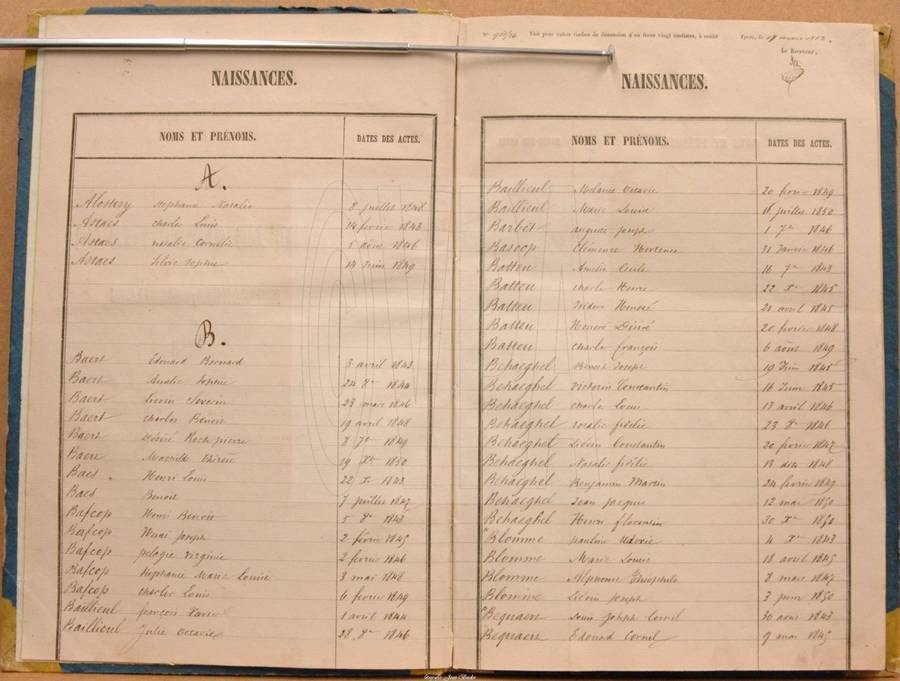 NAISSANCES.
NOMS ET PRÉNOMS. DATES DES ACTES.
A.
Alostery Stephanie Rosalie 8 juillet 1848
Astaes charles Louis 14 fevrier 1843
Astaes rosalie Cornelie 5 août 1846
Astaes Sophie 14 Juin 1849
B.
Baert Edouard Bernard 3 avril 1843
Baert Amelie Sophie 24 8re 1844
Baert Severin 23 mars 1846
Baert charles Benoit 19 avril 1848
Baert Désiré Roch pierre 2 7re 1849
Baert Mathilde 29 Xre 1850
Baes Henri Louis 22 Xre 1843
Baes Benoit 7 juillet 1847
Bafcop Henri Benoit 5 8re 1843
Bafcop Henri Joseph 2 février 1845
Bafcop pelagie virginie 2 février 1846
Bafcop Stephanie Marie Louise 3 mai 1848
Bafcop charles Louis 6 fevrier 1849
Baillieul françois Xavier 1 avril 1844
Baillieul Julie Octavie 28 8re 1846
Nº Visé pour valoir timbre de dimension d'un franc vingt centimes, à Ypres, le 17 mars 1852.
Le Receveur,
NAISSANCES.
NOMS ET PRÉNOMS. DATES DES ACTES.
Baillieul Melanie Octavie 20 fevrier 1849
Baillieul Marie Louise 16 juillet 1850
Barbet auguste joseph 1 7re 1846
Bascop Clemence Hortence 31 Janvier 1846
Batteu Amelie Cecile 16 7re 1843
Batteu charles Henri 22 Xre 1845
Batteu Honoré 20 avril 1845
Batteu Honoré Désiré 20 fevrier 1848
Batteu charles françois 6 août 1849
Behaeghel Benoit Joseph 19 Juin 1845
Behaeghel Victorin Constantin 16 Juin 1845
Behaeghel charles Louis 13 avril 1846
Behaeghel rosalie fidélie 23 8re 1846
Behaeghel Liévin Constantin 20 fevrier 1847
Behaeghel Natalie fidélie 13 1848
Behaeghel Benjamin Martin 24 fevrier 1849
Behaeghel Jean Jacques 12 mai 1850
Behaeghel Henri florentin 30 Xre 1850
Blomme pauline Udoxie 4 Xre 1843
Blomme Marie Louise 18 avril 1845
Blomme Alphonse Théophile 2 mars 1847
Blomme Liévin Joseph 3 juin 1850
Bequaert Louis Joseph Cornil 30 août 1843
Bequaert Edouard Cornil 9 mai 1845